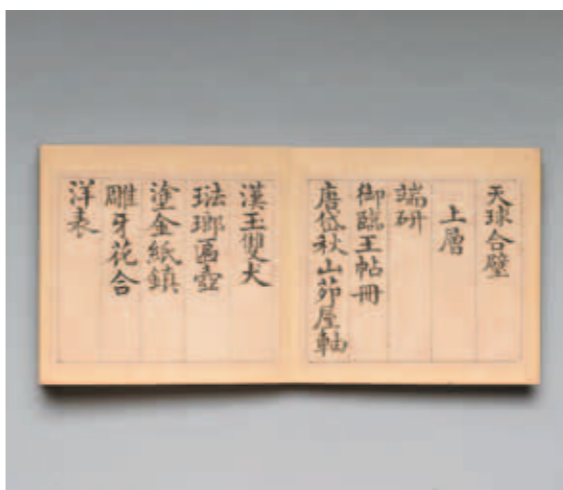 天球合璧
上層
端研
御臨王帖冊
唐岱秋山茆屋軸
漢玉雙犬
琺瑯匾壺
塗金紙鎮
雕牙花合
洋表